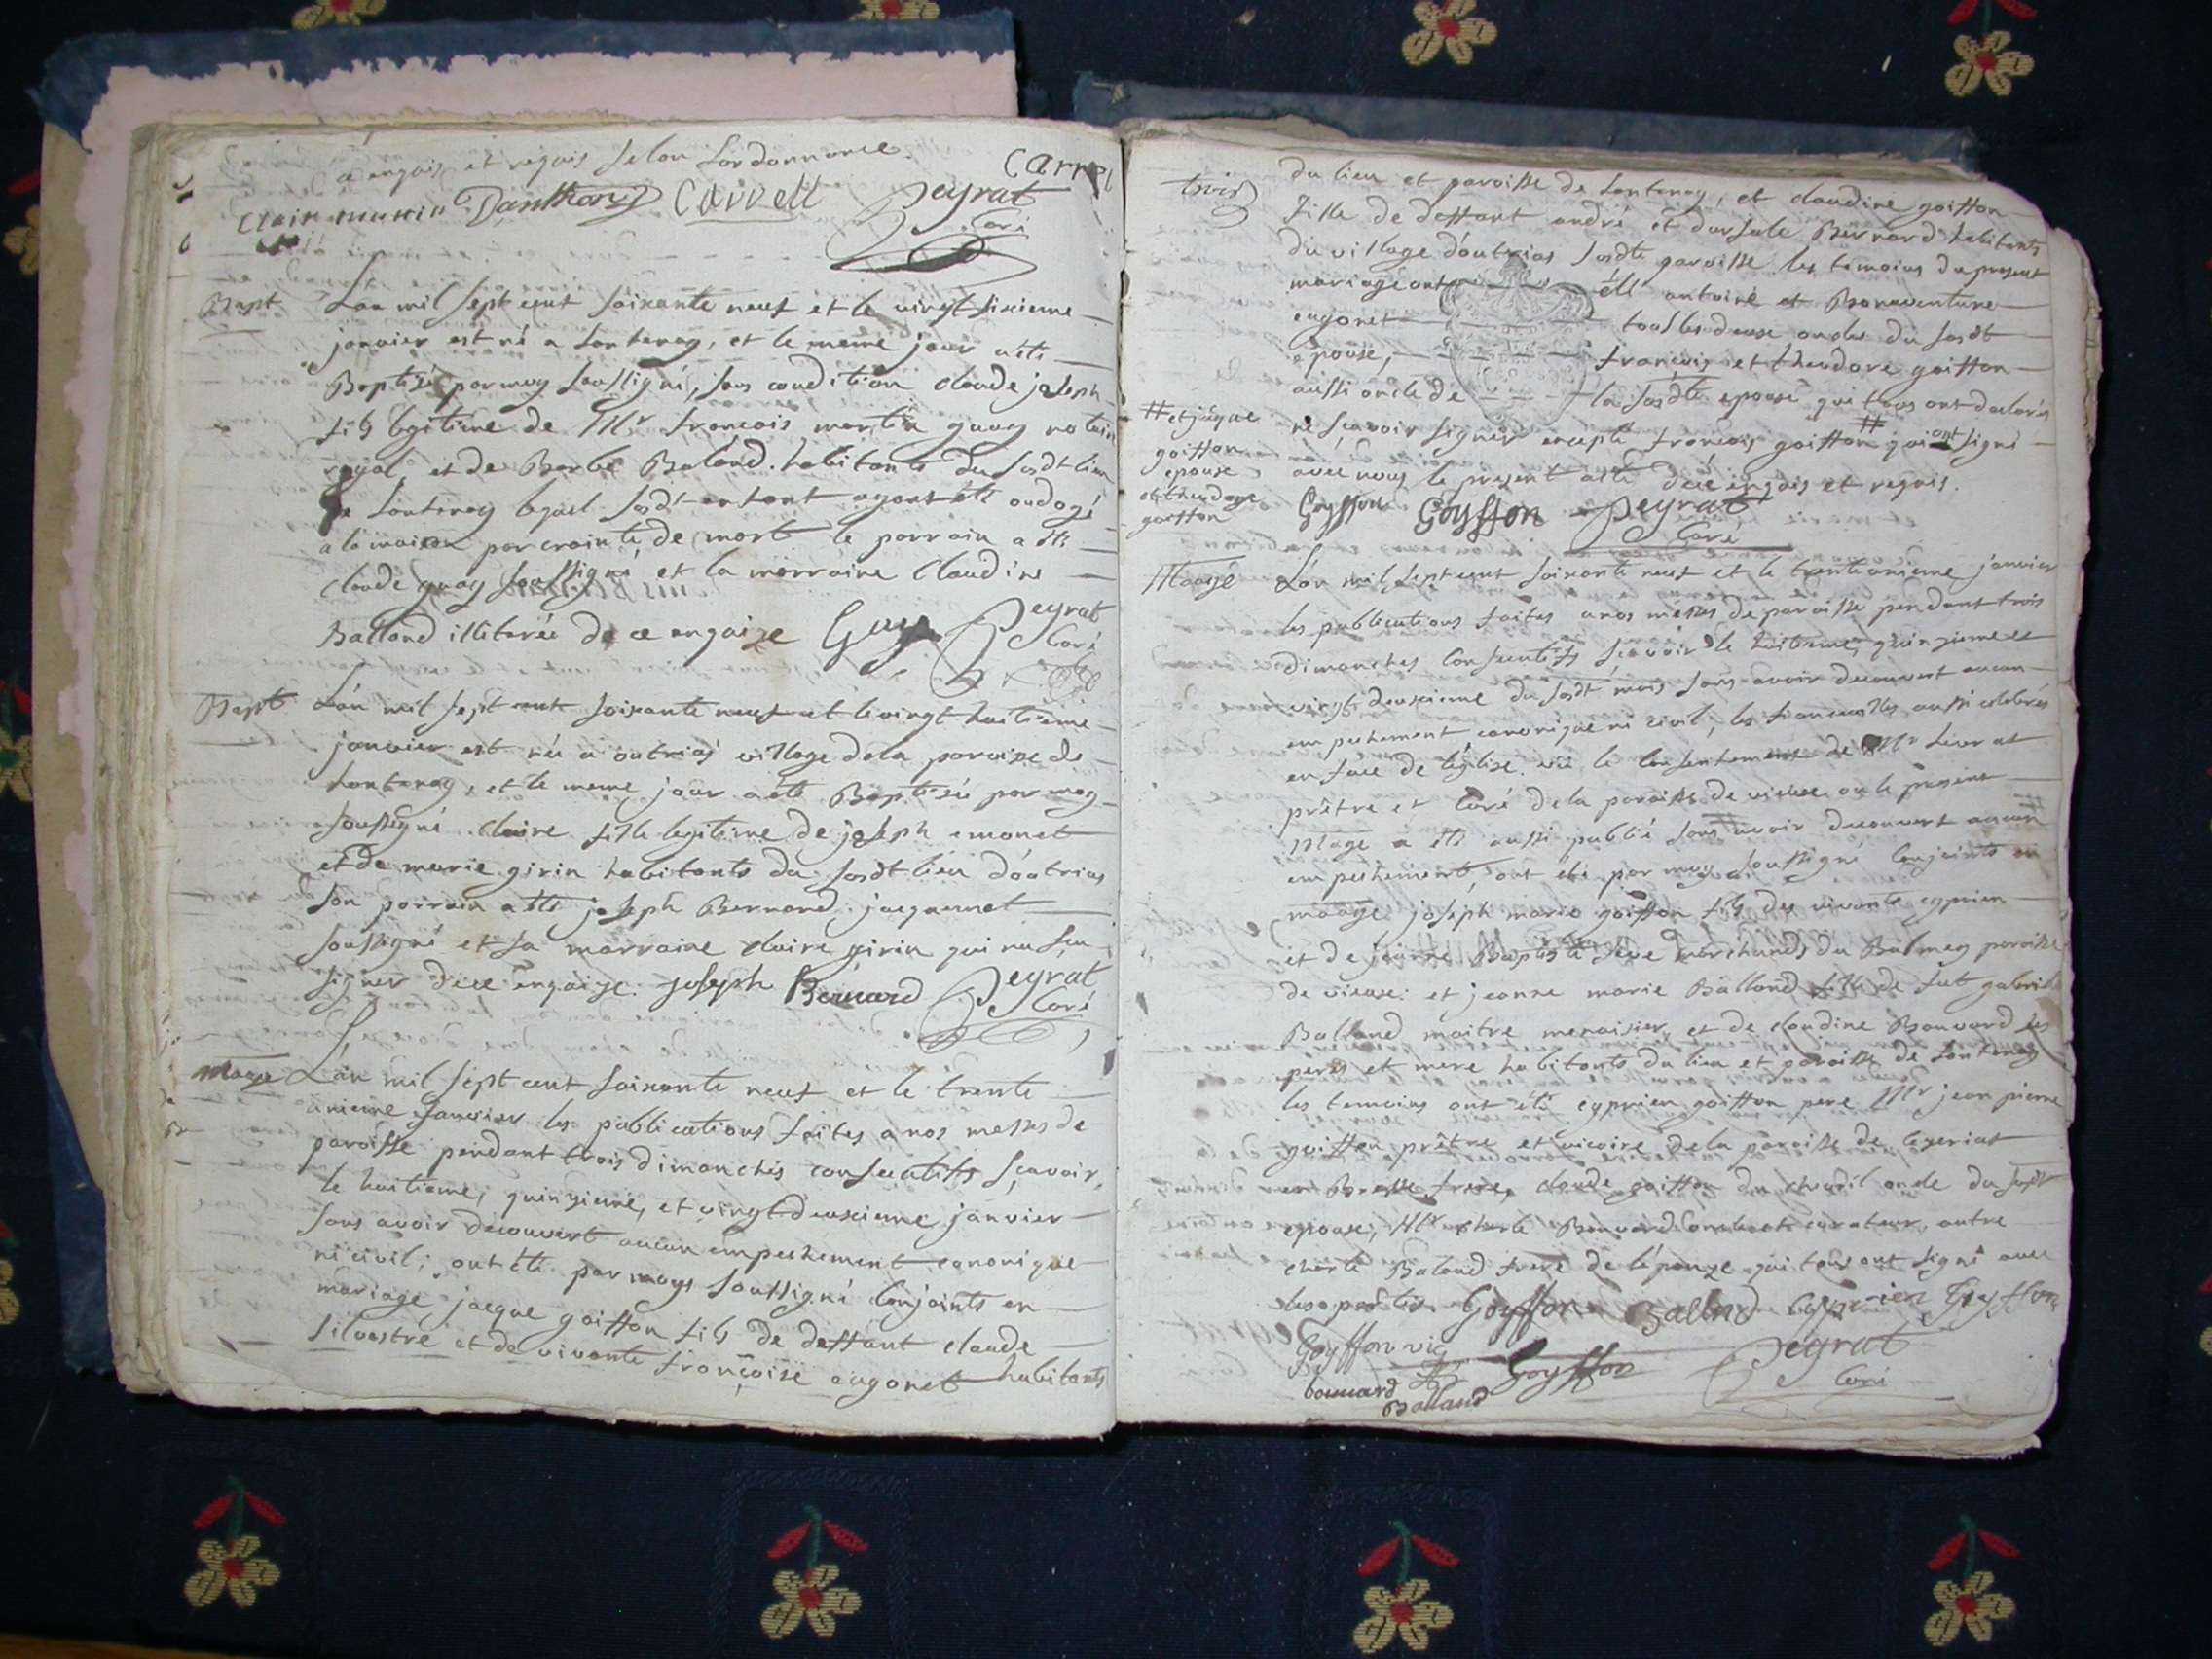 a engais et reqais selon Lordonnance.
Carrel
Clair munin Danthony Carrell Peyrat
Curé
Bapt
Lan mil sept cent soixante neuf et le vingt sixieme
janvier est né a Lantenay, et le meme jour a été
Baptisé par moy soussigné, sous condition claude joseph
fils legitime de Mr françois martin guay notaire
royal et de Barbe Baland habitants du susdt lieu
de Lantenay lequel susdt enfant ayant été ondoyé
a la maison par crainte de mort le parrain a été
claude guay soussigné et la marraine Claudine
Balland illiterée de ce enqaize Guay Peyrat
Curé
Bapt
Lán mil sept cent soixante neuf et le vingt huitieme
janvier est née a outrias village de la paroise de
Lantenay, et le meme jour a été Baptisée par moy
soussigné claire fille legitime de joseph emonet
et de marie girin habitants du susdt lieu d'outrias
son parrain a été joseph Bernard jacquemet
soussigné et sa marraine claire girin qui na sçu
signer de ce enqaize. joseph Bernard Peyrat
Curé
mage
Lán mil sept cent soixante neuf et le trente
unieme janvier les publications faites a nos messes de
paroisse pendant trois dimanches consecutifs sçavoir,
le huitieme, quinzieme, et vingt deuxieme janvier
sans avoir decouvert aucun empechement canonique
ni civil; ont été par moy soussigné Conjoints en
mariage jacque goiffon fils de deffunt claude
silvestre et de vivante françoise eugonet habitants
trois
du lieu et paroisse de Lantenay, et claudine goiffon
fille de deffunt andré et d'ursule Bernard habitants
du village d'outrias susdte paroisse les temoins du present
mariage ont été antoine et Bonaventure
eugonet tous les deux oncles du susdt
epouse, françois et theodore goiffon
aussi oncle de la susdte epouse qui tous ont declarés
ne sçavoir signer excepté françois goiffon # qui ont signé
avec nous le present acte de ce enqais et reqais.
# et jacque
goiffon
epouse
et theodore
goiffon
Goyffon Goyffon Peyrat
Curé
Maage
Lán mil sept cent soixante neuf et le trente unieme janvier
les publications faites a nos messes de paroisse pendant trois
dimanches Consecutifs sçavoir le huitieme, quinzieme et
vingt deuxieme du susdt mois sans avoir decouvert aucun
empechement canonique ni civil, les fiancailles aussi celebrés
en face de l'église. vû le Consentement de Mr Livrat
prêtre et Curé de la paroisse de vieux ou le present
Mage a été aussi publié sans avoir decouvert aucun
empechement, ont été par moy soussigné Conjoints en
maage joseph marie goiffon fils des vivants cyprien
et de jeanne Baptiste seve marchands du Balmey paroisse
de vieux: et jeanne marie Balland fille de fut gabriel
Balland maitre menuisier, et de claudine Bonvard ses
peres et mere habitants du lieu et paroisse de Lantenay
les temoins ont été cyprien goiffon pere Mr jean pierre
goiffon prêtre et vicaire de la paroisse de ceyzeriat
en Bresse frere, claude goiffon du oncle du susdt
epouse, Mr charle Bonvard curateur, autre
charle Baland frere de l'épouze qui tous ont signé avec
les parties. Goyffon Balland Cyprien Goyffon
Goyffon vic Goyffon Peyrat
Curé
bonvard
Balland